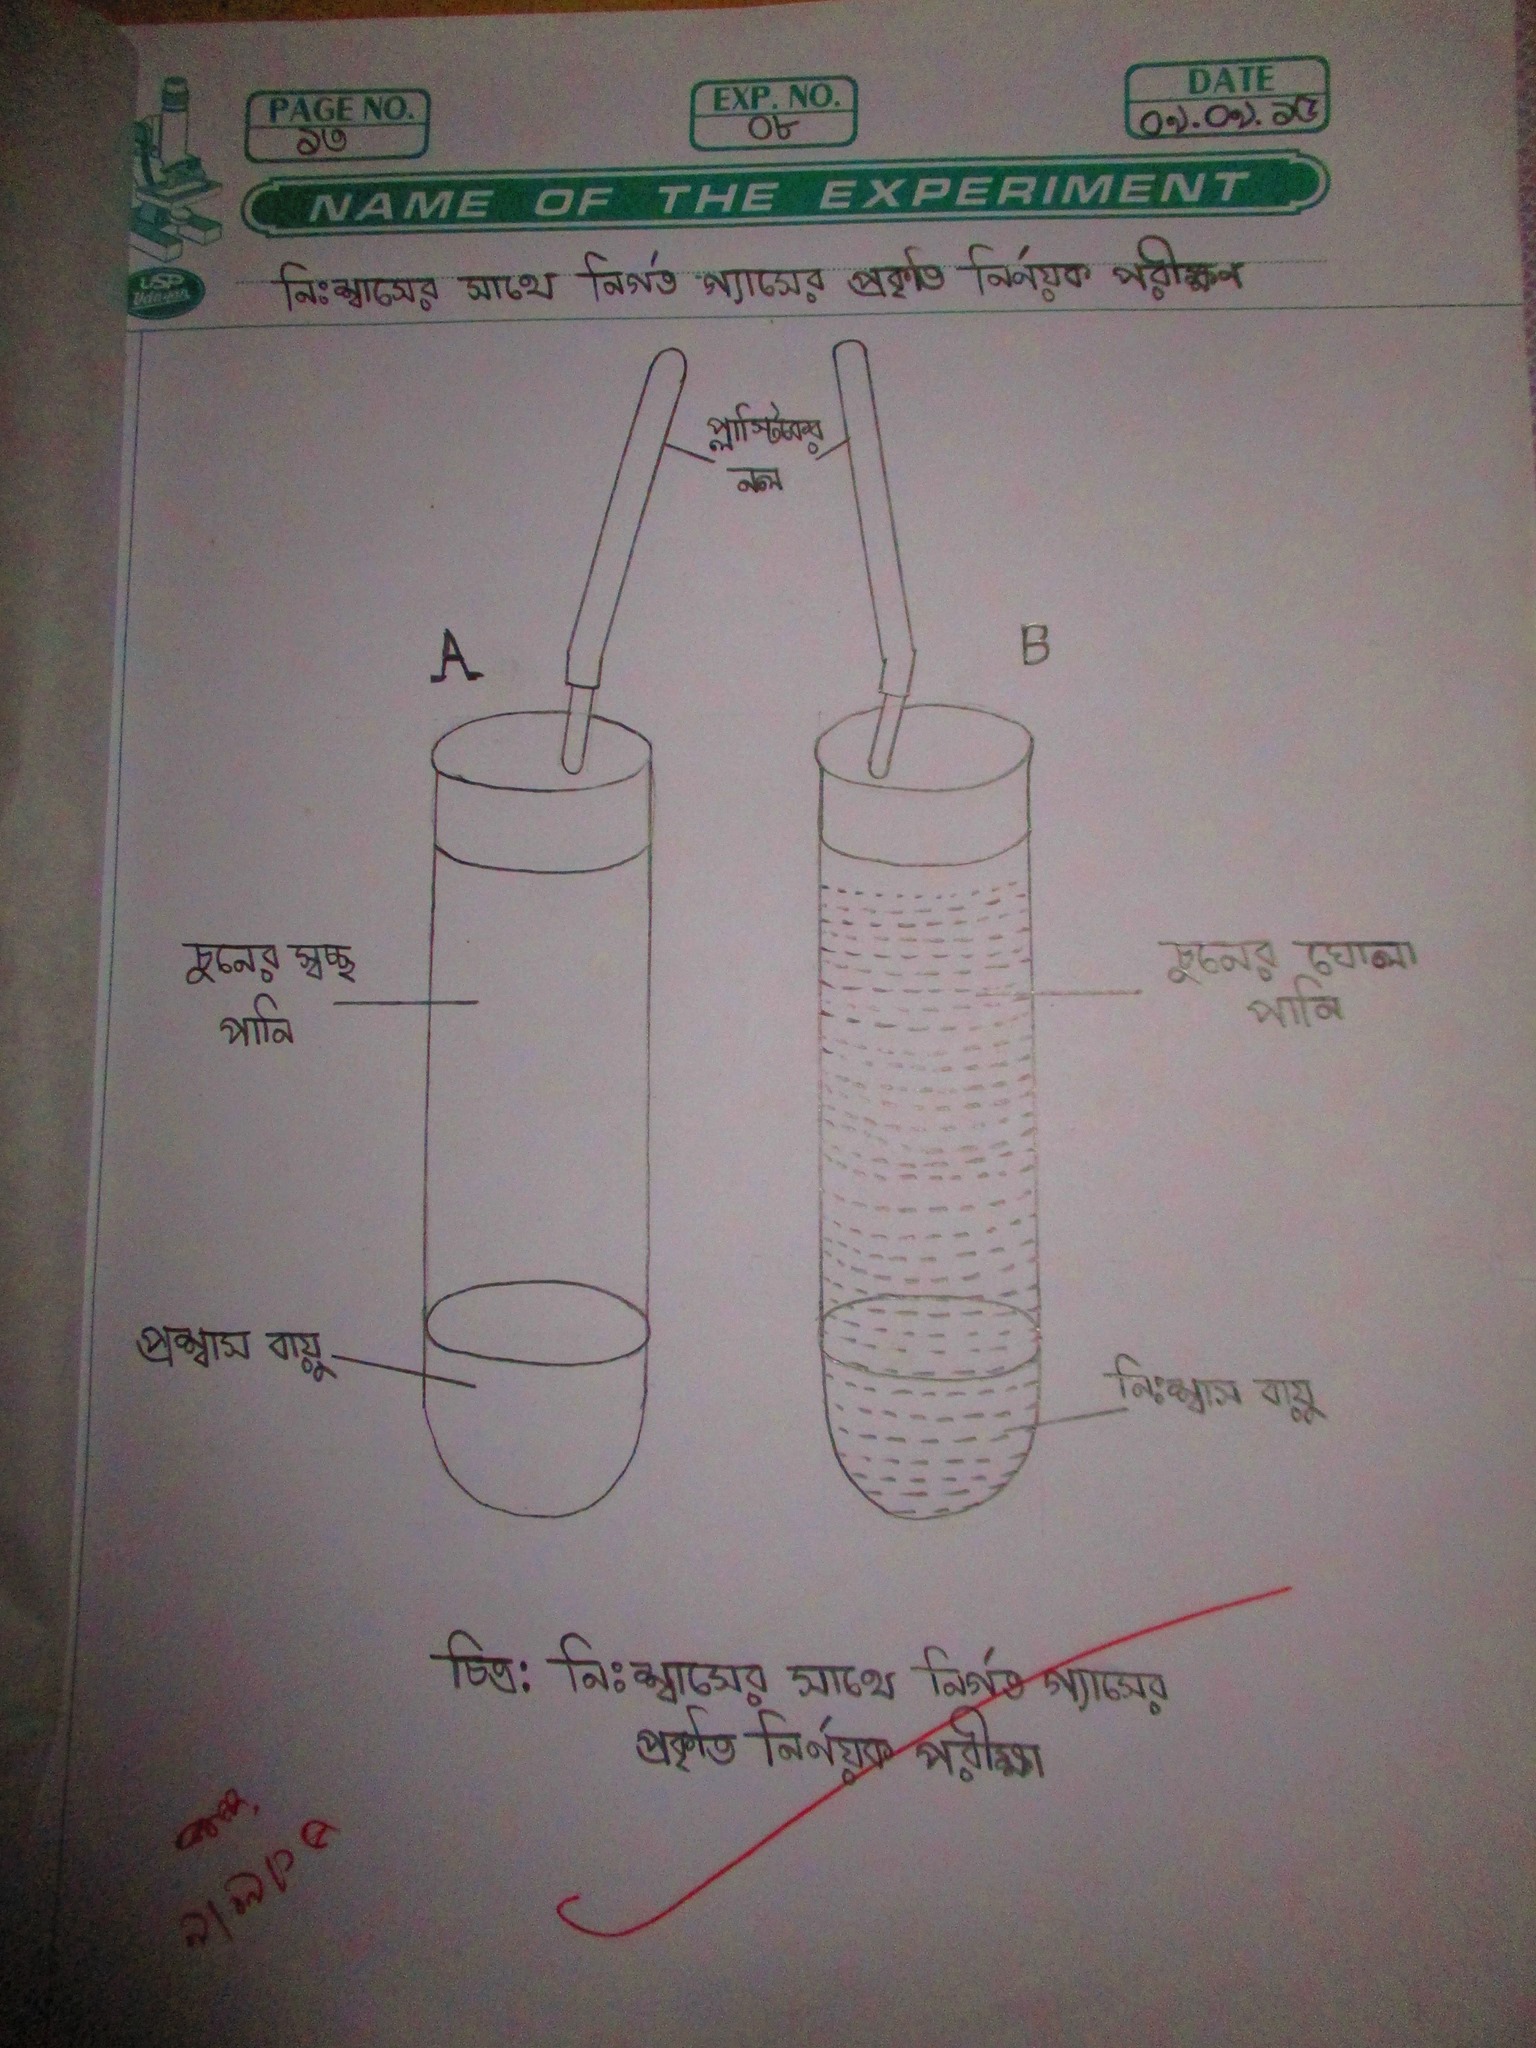 PAGE NO.
১৩
EXP. NO.
০৮
DATE
০৭.০৭.১৫
NAME OF THE EXPERIMENT
USP
Udayan
নিঃশ্বাসের সাথে নির্গত গ্যাসের প্রকৃতি নির্নয়ক পরীক্ষণ
প্লাস্টিকের
নল
A
B
চুনের স্বচ্ছ
পানি
চুনের ঘোলা
পানি
প্রশ্বাস বায়ু
নিঃশ্বাস বায়ু
চিত্র: নিঃশ্বাসের সাথে নির্গত গ্যাসের
প্রকৃতি নির্নয়ক পরীক্ষা